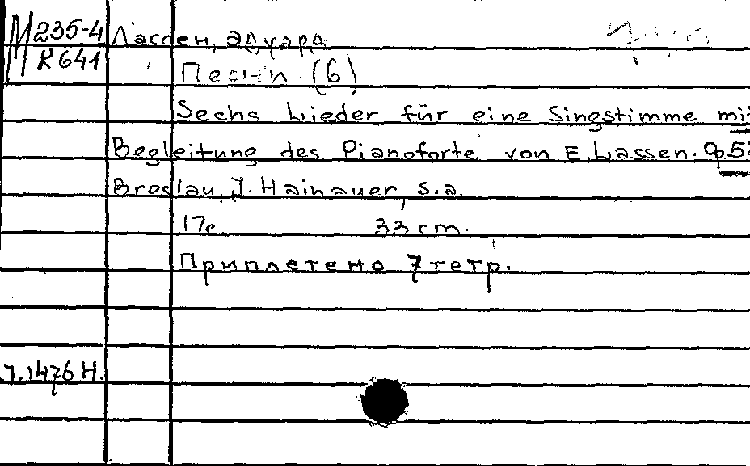 М 235-4 Лассен, Эдуард
К 641 Песни (6)
Sechs Lieder für eine Singstimme mit
Begleitung des Pianoforte von E. Lassen. Op.5
Breslau, J. Hainauer, s.a.
17с. 33 cm.
Приплетено 7 тетр.
1476 Н.